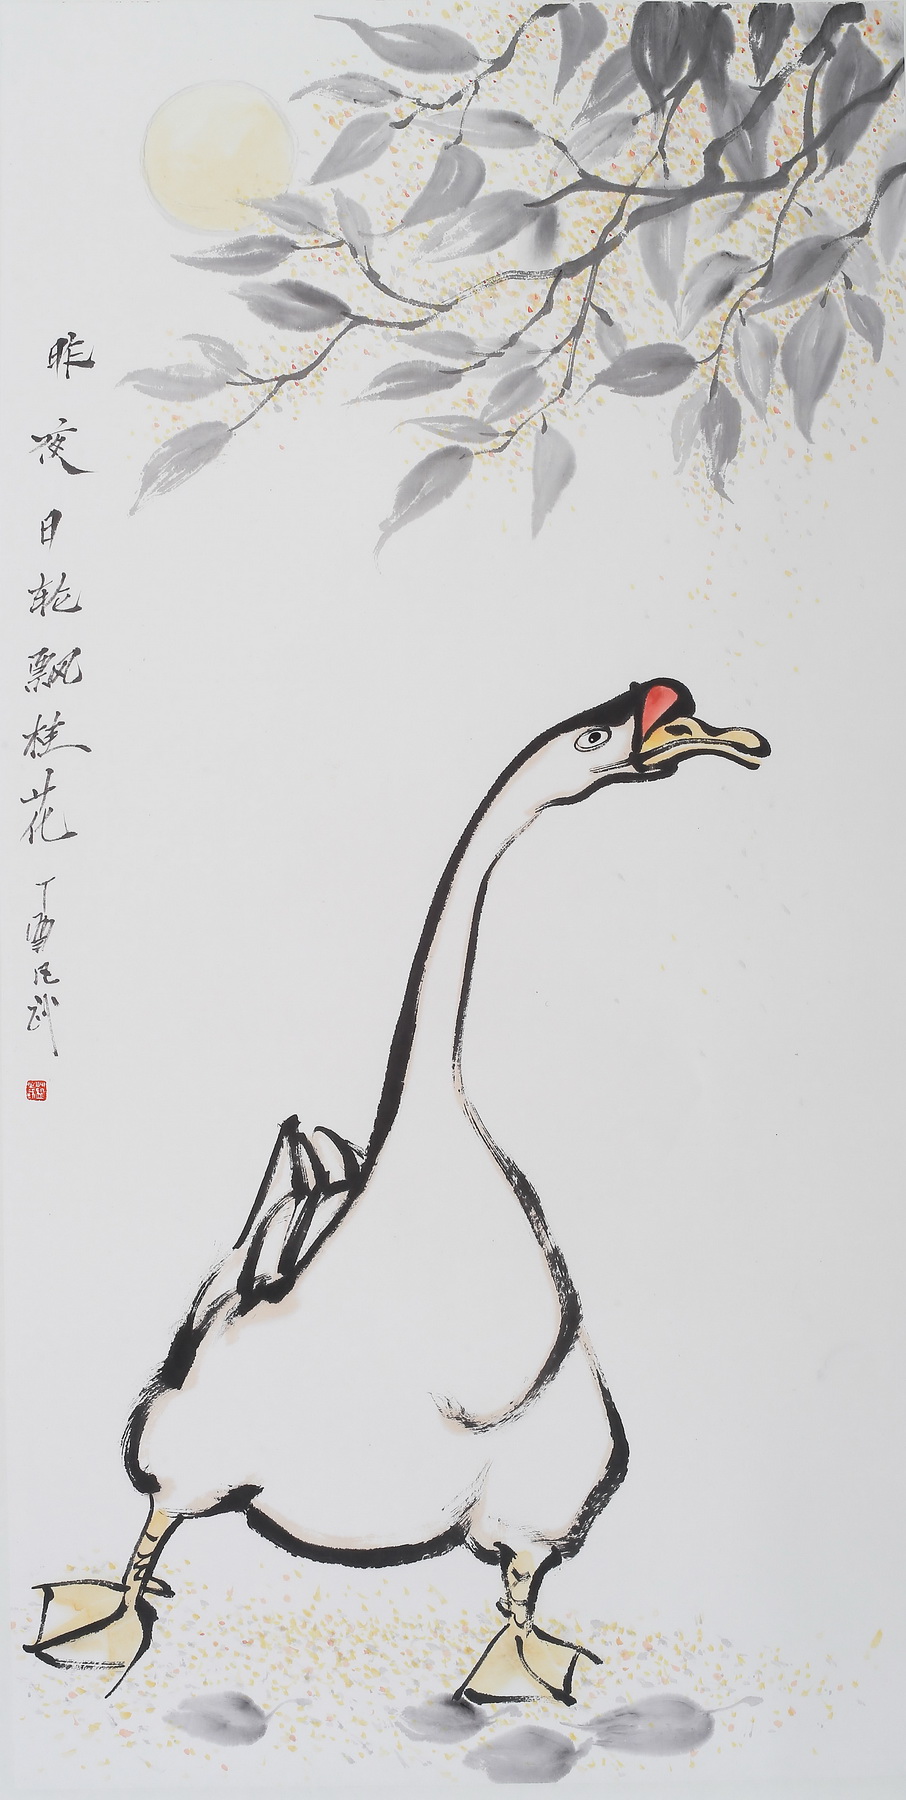 昨夜日轮飘桂花
丁酉